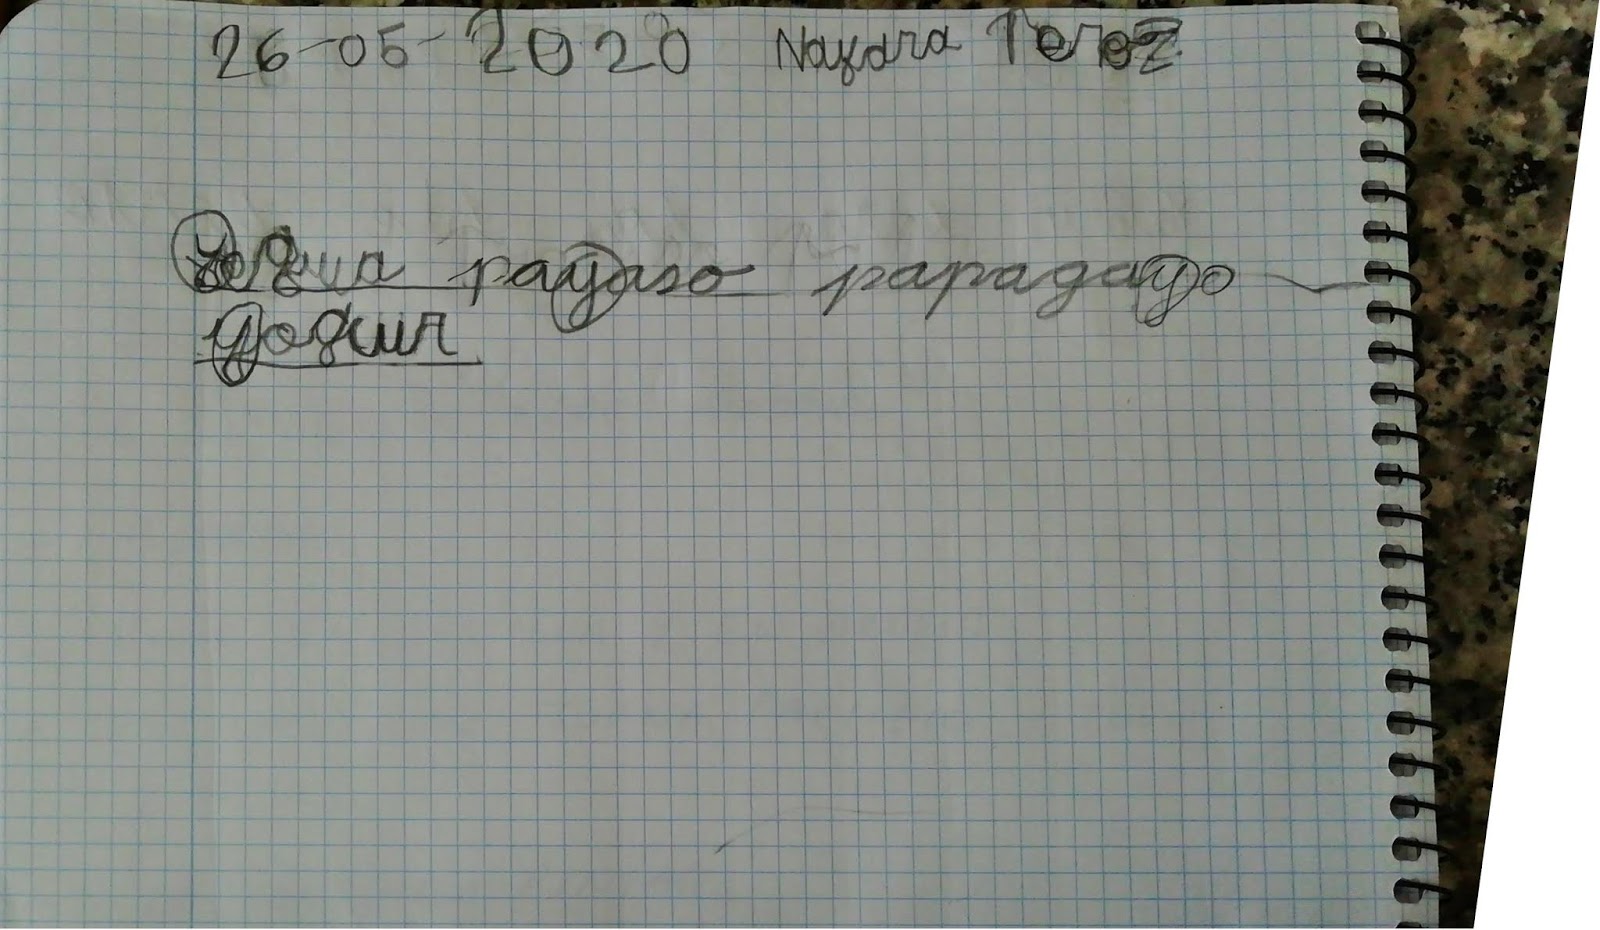 26-05-2020 Nayara Perez
payaso papagayo
yogur